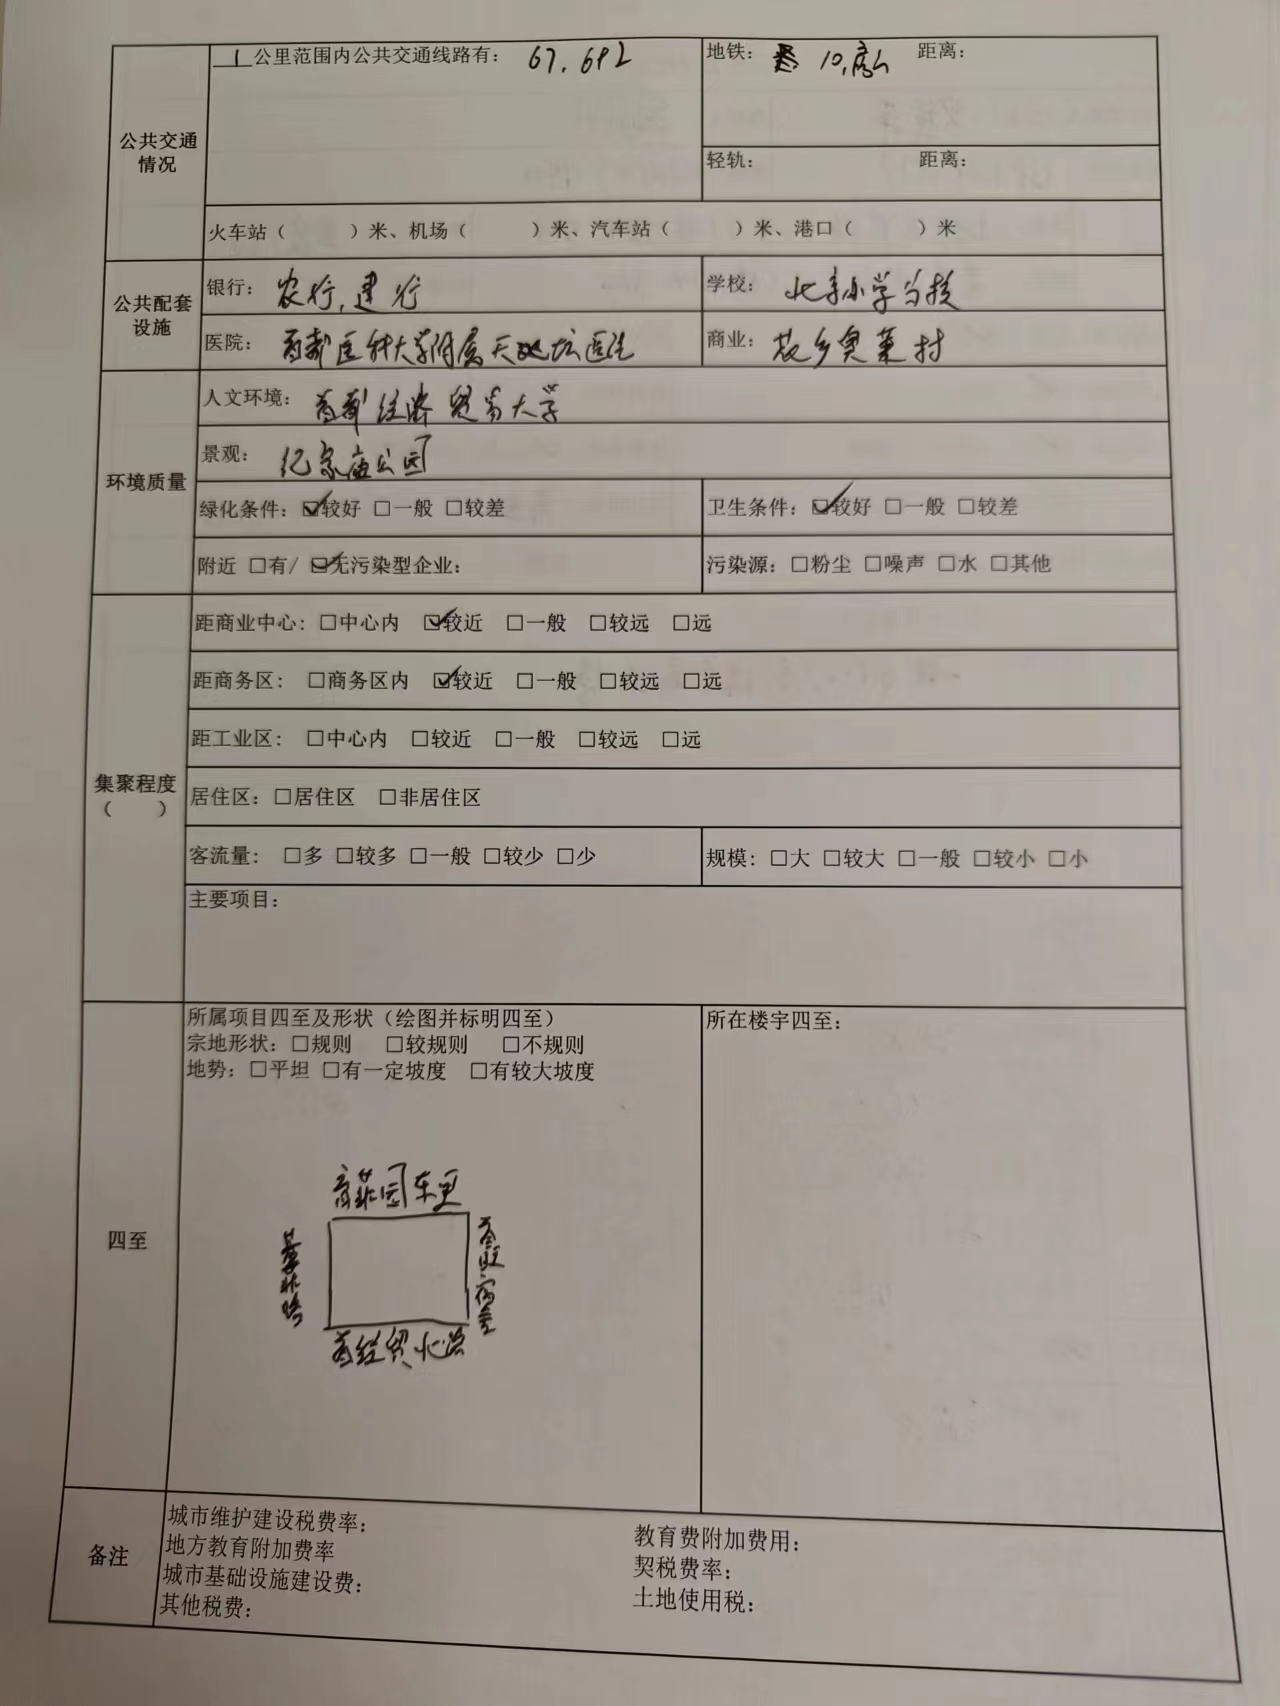 公共交通情况
1公里范围内公共交通线路有： 67.692
地铁： 10,房山 距离：
轻轨： 距离：
火车站（ ）米、机场（ ）米、汽车站（ ）米、港口（ ）米
公共配套设施
银行： 农行，建行
学校： 北京小学分校
医院： 首都医科大学附属天坛医院
商业： 花乡奥莱村
环境质量
人文环境： 首都经济贸易大学
景观： 纪家庙公园
绿化条件：☑较好 □一般 □较差
卫生条件：☑较好 □一般 □较差
附近 □有/ ☑无污染型企业：
污染源：□粉尘 □噪声 □水 □其他
集聚程度（ ）
距商业中心：□中心内 ☑较近 □一般 □较远 □远
距商务区： □商务区内 ☑较近 □一般 □较远 □远
距工业区： □中心内 □较近 □一般 □较远 □远
居住区：□居住区 □非居住区
客流量： □多 □较多 □一般 □较少 □少
规模：□大 □较大 □一般 □较小 □小
主要项目：
四至
所属项目四至及形状（绘图并标明四至）
宗地形状：□规则 □较规则 □不规则
地势：□平坦 □有一定坡度 □有较大坡度
所在楼宇四至：
芳菲园东里
首经贸北路
备注
城市维护建设税费率：
教育费附加费用：
地方教育附加费率
契税费率：
城市基础设施建设费：
土地使用税：
其他税费：